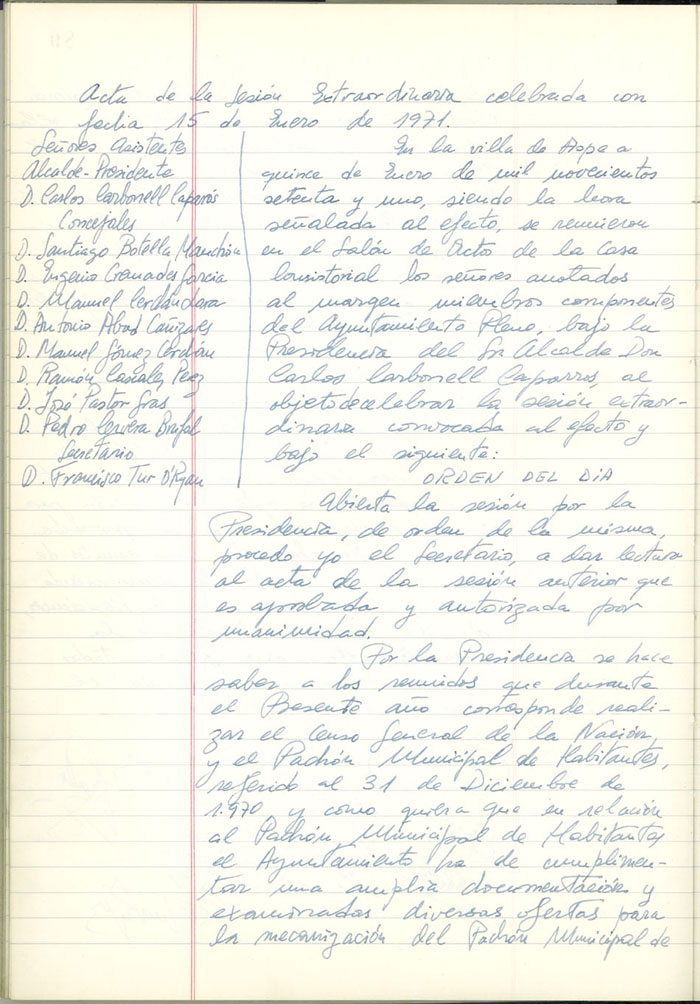 Acta de la Sesión Extraordinaria celebrada con
fecha 15 de Enero de 1971.
Señores Asistentes
Alcalde-Presidente
D. Carlos Carbonell Caparrós
Concejales
D. Santiago Botella Manchón
D. Eugenio Granades Garcia
D. Manuel Cerdán
D. Antonio Abad Cañizares
D. Manuel Gómez Cerdán
D. Ramón Casales Perez
D. José Pastor Gras
D. Pedro Cervera Brufal
Secretario
D. Francisco Tur O'Ryan
En la villa de Aspe a
quince de Enero de mil novecientos
setenta y uno, siendo la hora
señalada al efecto, se reunieron
en el Salón de Acto de la Casa
Consistorial los señores anotados
al margen miembros componentes
del Ayuntamiento Pleno, bajo la
Presidencia del Sr. Alcalde Don
Carlos Carbonell Caparros, al
objeto de celebrar la sesión extraor-
dinaria convocada al efecto y
bajo el siguiente:
ORDEN DEL DIA
Abierta la sesión por la
Presidencia, de orden de la misma,
procedo yo el Secretario, a dar lectura
al acta de la sesión anterior que
es aprobada y autorizada por
unanimidad.
Por la Presidencia se hace
saber a los reunidos que durante
el Presente año corresponde reali-
zar el Censo General de la Nación,
y el Padrón Municipal de Habitantes,
referido al 31 de Diciembre de
1.970 y como quiera que en relación
al Padrón Municipal de Habitantes
el Ayuntamiento ha de cumplimen-
tar una amplia documentación y
examinadas diversas ofertas para
la mecanización del Padrón Municipal de